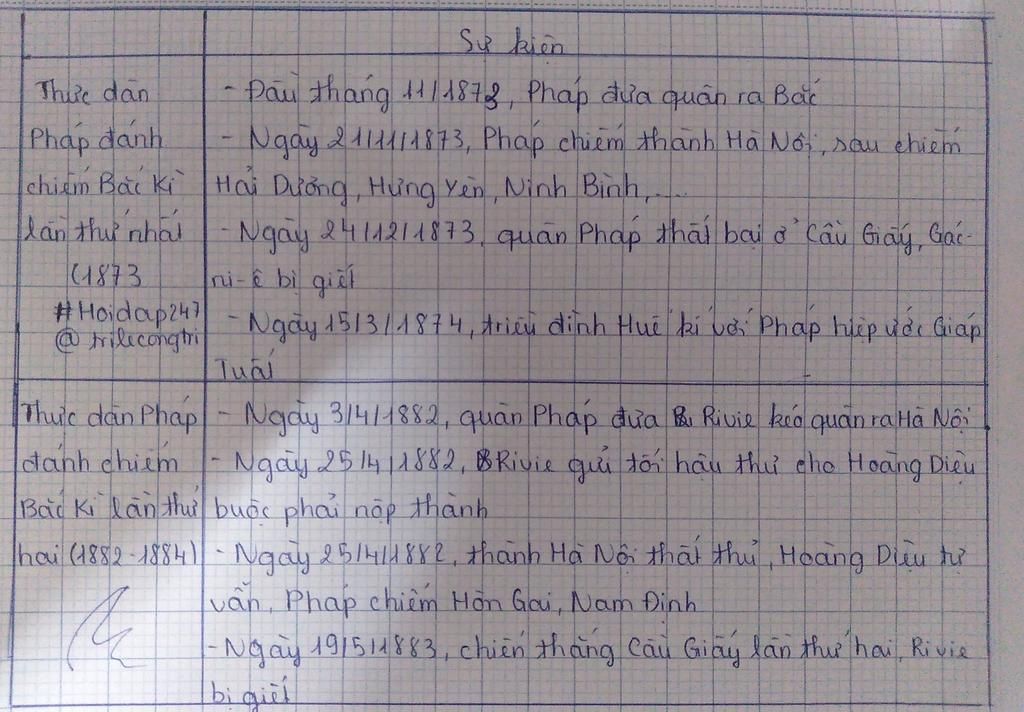 Sự kiện
Thực dân
Pháp đánh
chiếm Bắc Kì
lần thứ nhất
(1873
#Hoidap247
@trilecongtri
- Đầu tháng 11/1873, Pháp đưa quân ra Bắc
- Ngày 21/11/1873, Pháp chiếm thành Hà Nội, sau chiếm
Hải Dương, Hưng Yên, Ninh Bình,....
- Ngày 24/12/1873, quân Pháp thất bại ở Cầu Giấy, Gác-
ni-ê bị giết
- Ngày 15/3/1874, triều đình Huế kí với Pháp hiệp ước Giáp
Tuất
Thực dân Pháp
đánh chiếm
Bắc Kì lần thứ
hai (1882-1884)
- Ngày 3/4/1882, quân Pháp đưa Rivie kéo quân ra Hà Nội
- Ngày 25/4/1882, Rivie gửi tối hậu thư cho Hoàng Diệu
buộc phải nộp thành
- Ngày 25/4/1882, thành Hà Nội thất thủ, Hoàng Diệu tự
vẫn, Pháp chiếm Hòn Gai, Nam Định
- Ngày 19/5/1883, chiến thắng Cầu Giấy lần thứ hai, Rivie
bị giết